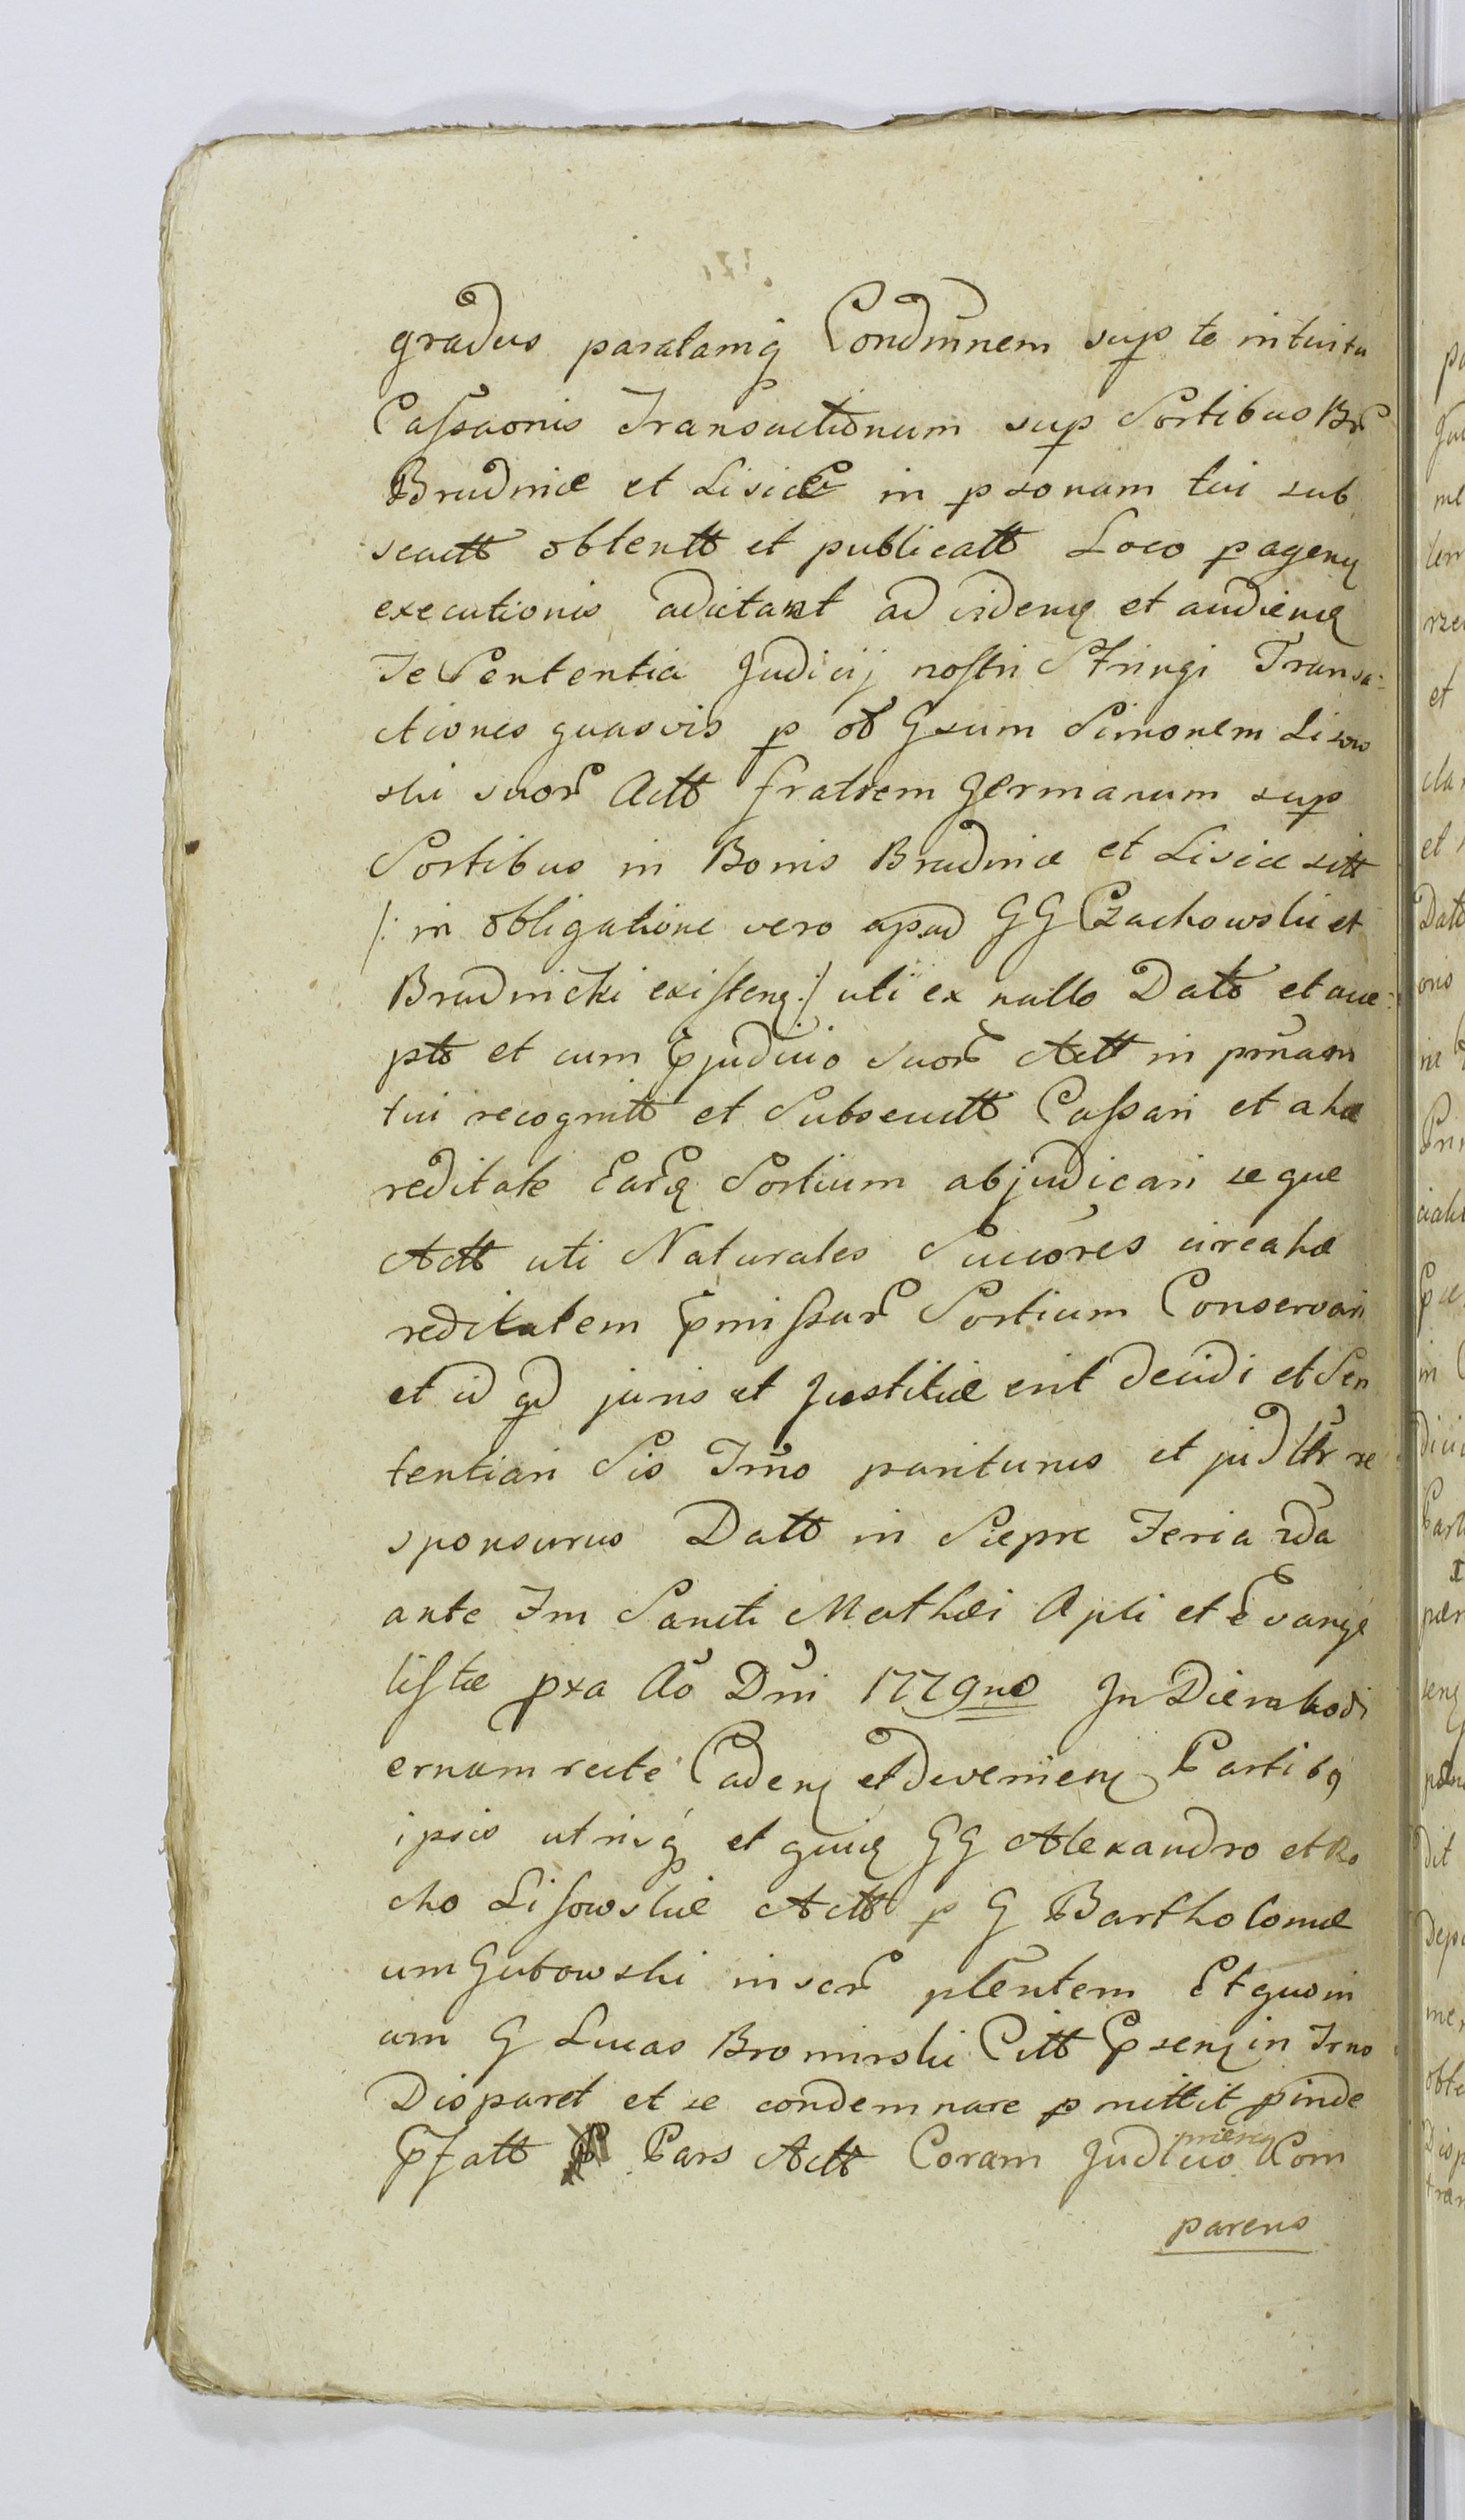 gradus paratamq̃ Condmnem sup te intuitu
Cassaonis Transactionum sup Sortibus Br
Brudnice et Lisice in psonam tui sub
secutt obtentt et publicatt Loco pagenq
executionis adcitant ad videnq et audienq
Te Sententia Judicij nostri Stringi Transa-
ctiones quasvis p ol Gsum Simonem Lisow
ski suor Actt fratrem germanum sup
Sortibus in Bonis Brudnice et Lisice sitt
/: in obligatione vero apud GG Czachowskie et
Brudnicki existenq :/ uti ex nullo Dato et acce-
pto et cum Pjudicio suor Actt in psnam
tui recognitt et Subsecutt Cassari et ahæ
reditate Earq Sortium abjudicari seque
Actt uti Naturales Succores circa hæ
reditatem Pmissar Sortium Conservari
et id qd juris et Justitiæ erit decidi et Sen
tentiari Sis Trno pariturus et judltr re
sponsurus Datt in Sierpc Feria 2da
ante Fm Sancti Mathæi Apli et Evange
listæ pxa Ao Dni 1779no In Diem hodi
ernam recte Cadenq et devenienq Partibq
ipsis utrisq̃ et quiq GG Alexandro et Ro
cho Lisowskie Actt p G Bartholomæ
um Gutowski inscr plentem Et quoni
am G Lucas Bromirski Citt Psenq in Trno
Disparet et se condemnare pmittit pinde
Pfatt Pars Actt Coram Judicio pnienq Com
parens